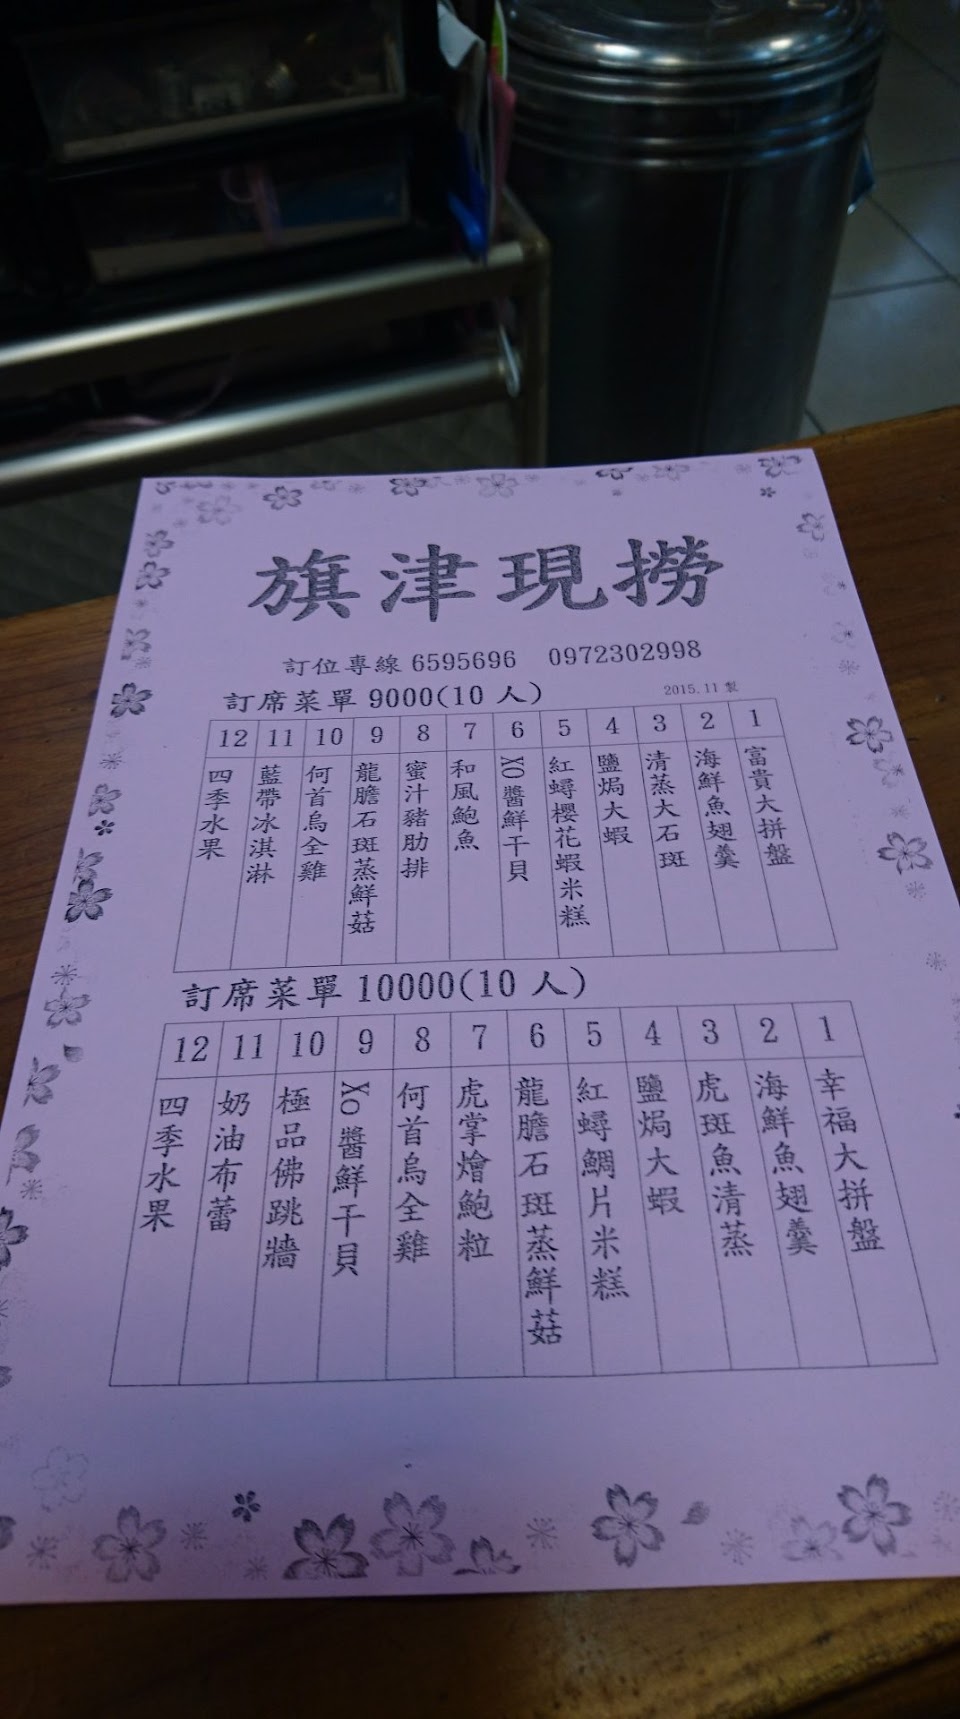 旗津現撈
訂位專線 6595696 0972302998
訂席菜單 9000(10 人)
2015.11 製
1 富貴大拼盤
2 海鮮魚翅羹
3 清蒸大石斑
4 鹽焗大蝦
5 紅蟳櫻花蝦米糕
6 XO醬鮮干貝
7 和風鮑魚
8 蜜汁豬肋排
9 龍膽石斑蒸鮮菇
10 何首烏全雞
11 藍帶冰淇淋
12 四季水果
訂席菜單 10000(10 人)
1 幸福大拼盤
2 海鮮魚翅羹
3 虎斑魚清蒸
4 鹽焗大蝦
5 紅蟳鯛片米糕
6 龍膽石斑蒸鮮菇
7 虎掌燴鮑粒
8 何首烏全雞
9 XO醬鮮干貝
10 極品佛跳牆
11 奶油布蕾
12 四季水果